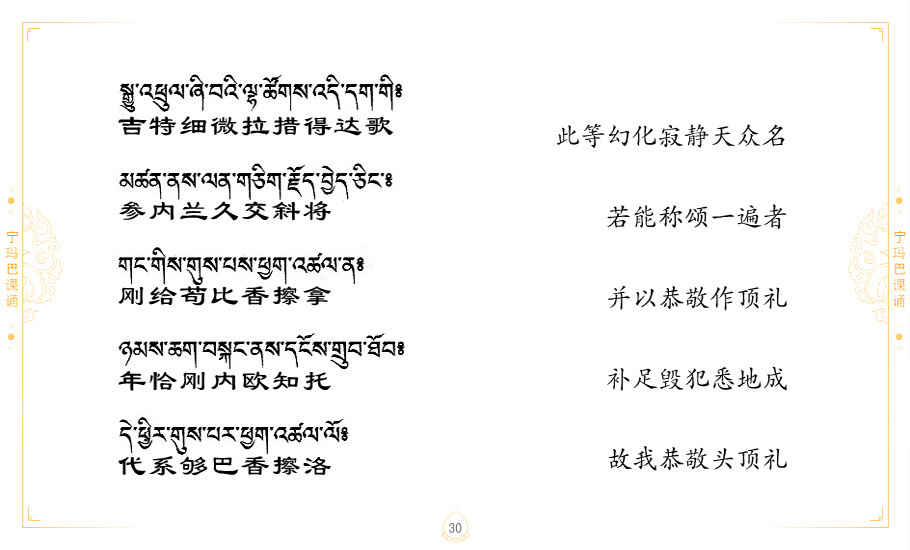 སྒྱུ་འཕྲུལ་ཞི་བའི་ལྷ་ཚོགས་འདི་དག་གི༔
吉特细微拉措得达歌
此等幻化寂静天众名
མཚན་ནས་ལན་གཅིག་རྗོད་བྱེད་ཅིང་༔
参内兰久交斜将
若能称颂一遍者
གང་གིས་གུས་པས་ཕྱག་འཚལ་ན༔
刚给苟比香擦拿
并以恭敬作顶礼
ཉམས་ཆག་བསྐང་ནས་དངོས་གྲུབ་ཐོབ༔
年恰刚内欧知托
补足毁犯悉地成
དེ་ཕྱིར་གུས་པར་ཕྱག་འཚལ་ལོ༔
代系够巴香擦洛
故我恭敬头顶礼
宁玛巴课诵
宁玛巴课诵
30